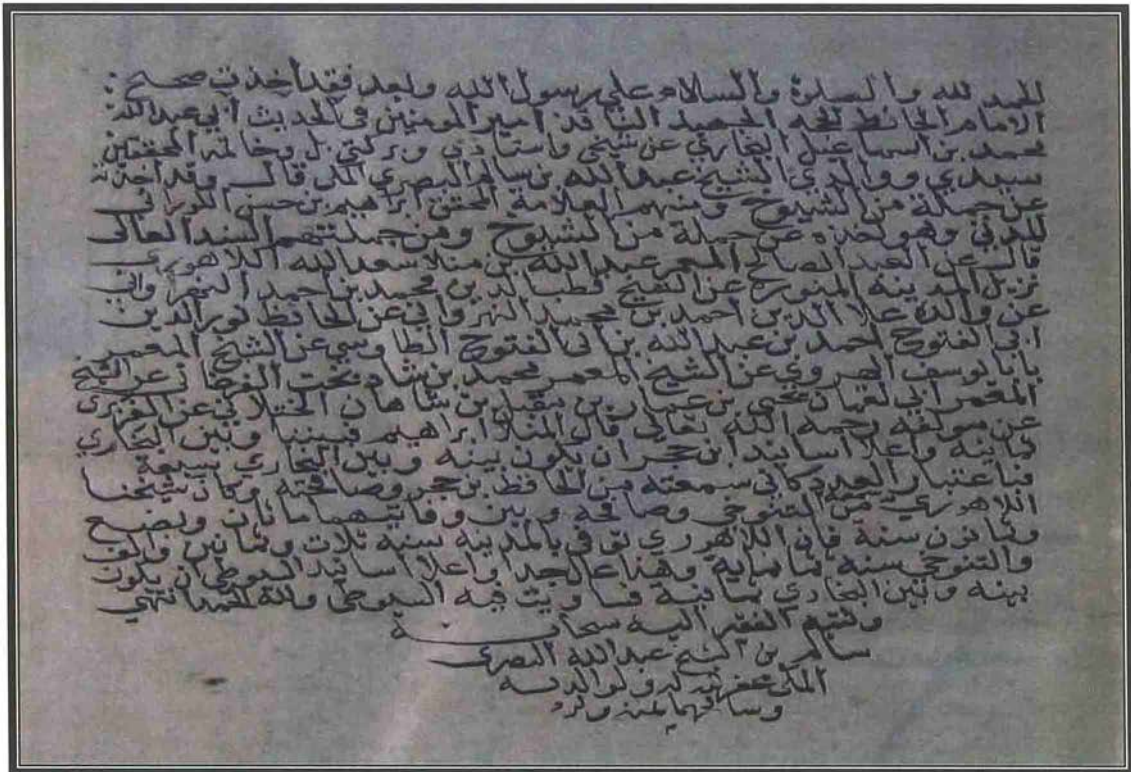 الحمد لله والصلاة والسلام على رسول الله وبعد فقد أخذت صحيح
الامام الحافظ الحجه الناقد امير المومنين في الحديث أبي عبدالله
محمد بن اسماعيل البخاري عن شيخي واستاذي وبركتي بل وخاتمة المحققين
سيدي ووالدي الشيخ عبدالله بن سالم البصري المكي قال وقد أخذته
عن جملة من الشيوخ ومنهم العلامة المحقق ابراهيم بن حسن الكوراني
المدني وهو أخذه عن جملة من الشيوخ ومن جملتهم السند العالي
قال عن العبد الصالح المعمر عبدالله بن منلا سعدالله اللاهوري
نزيل المدينه المنوره عن الشيخ قطب الدين بن محمد بن احمد النهرواني
عن والده علا الدين احمد بن محمد النهرواني عن الحافظ نور الدين
ابي الفتوح احمد بن عبدالله بن أبي الفتوح الطاوسي عن الشيخ المعمر
بابا يوسف الهروي عن الشيخ المعمر محمد بن شاد بخت الفرغاني عن الشيخ
المعمر ابي لقمان يحيى بن عمار بن مقبل بن شاهان الختلاني عن الفربري
عن مولفه رحمه الله تعالى قال المنلا ابراهيم فبيننا وبين البخاري
ثمانية وأعلا أسانيد ابن حجر ان يكون بينه وبين البخاري سبعة
فباعتبار العدد كاني سمعته من الحافظ بن حجر وصافحته وكان شيخنا
اللاهوري من التنوخي وصافحه وبين وفاتيهما مائتان وبضع
وثمانون سنة فإن اللاهوري توفي بالمدينه سنه ثلاث وثمانين والف
والتنوخي سنة ثمانماية وهذا عال جدا وأعلا أسانيد السيوطي أن يكون
بينه وبين البخاري ثمانية فساويت فيه السيوطي ولله الحمد انتهى
وكتبه الفقير اليه سبحانه
سالم بن الشيخ عبدالله البصري
المكي عفر له ولوالديه